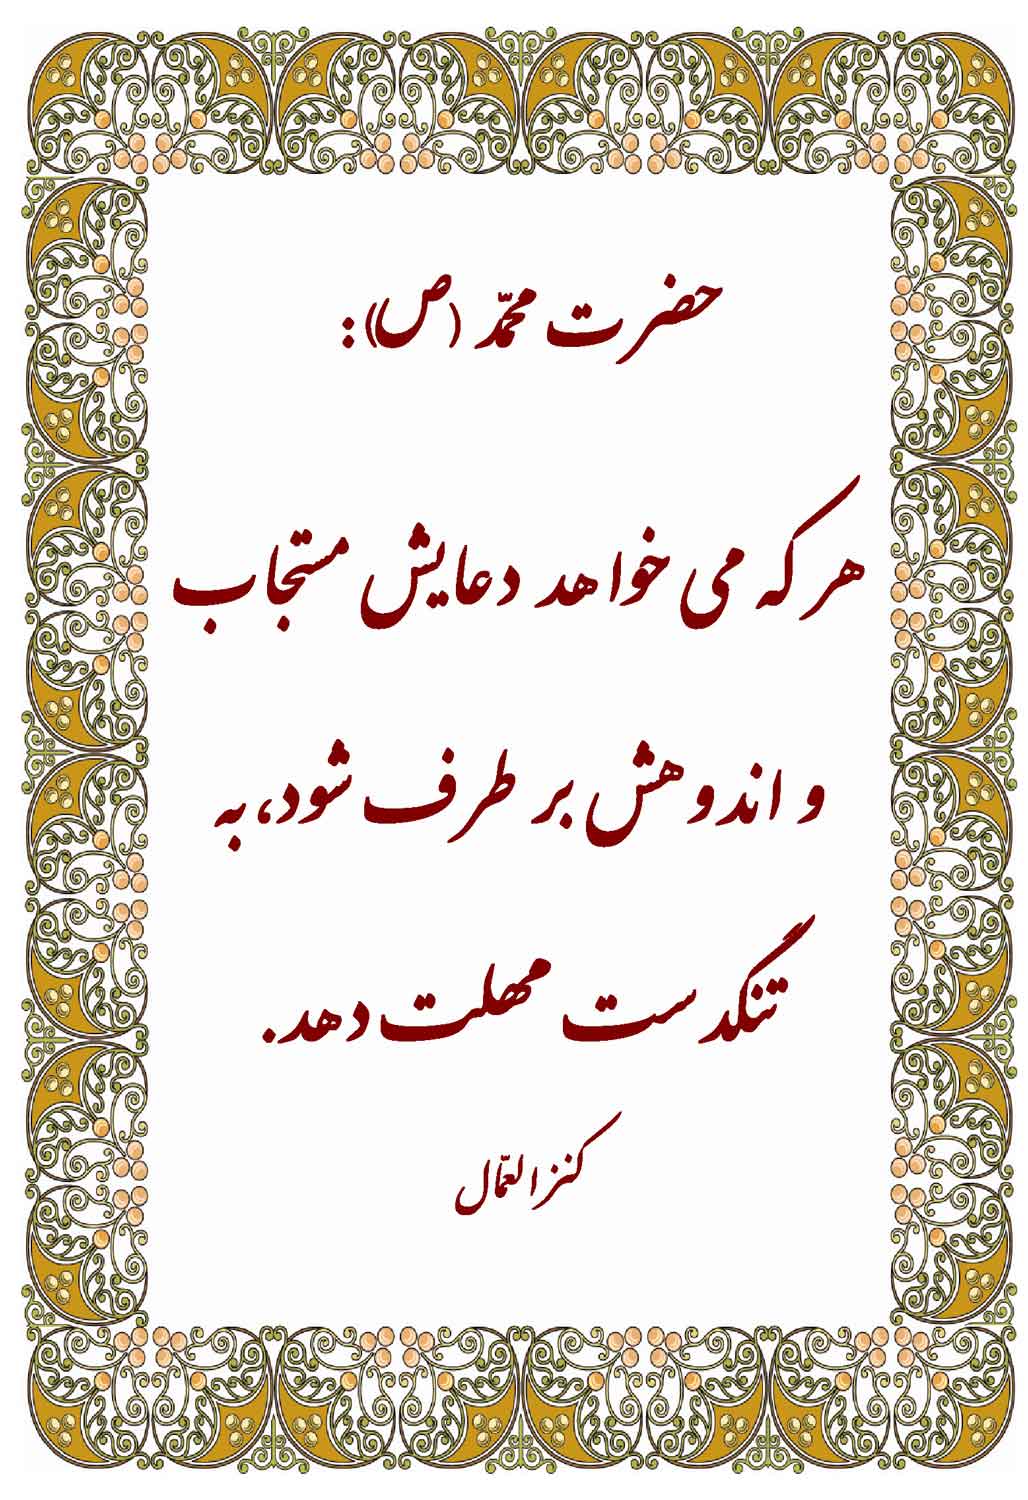 حضرت محمّد (ص):
هر که می خواهد دعایش مستجاب
و اندوهش بر طرف شود، به
تنگدست مهلت دهد.
کنز العمّال